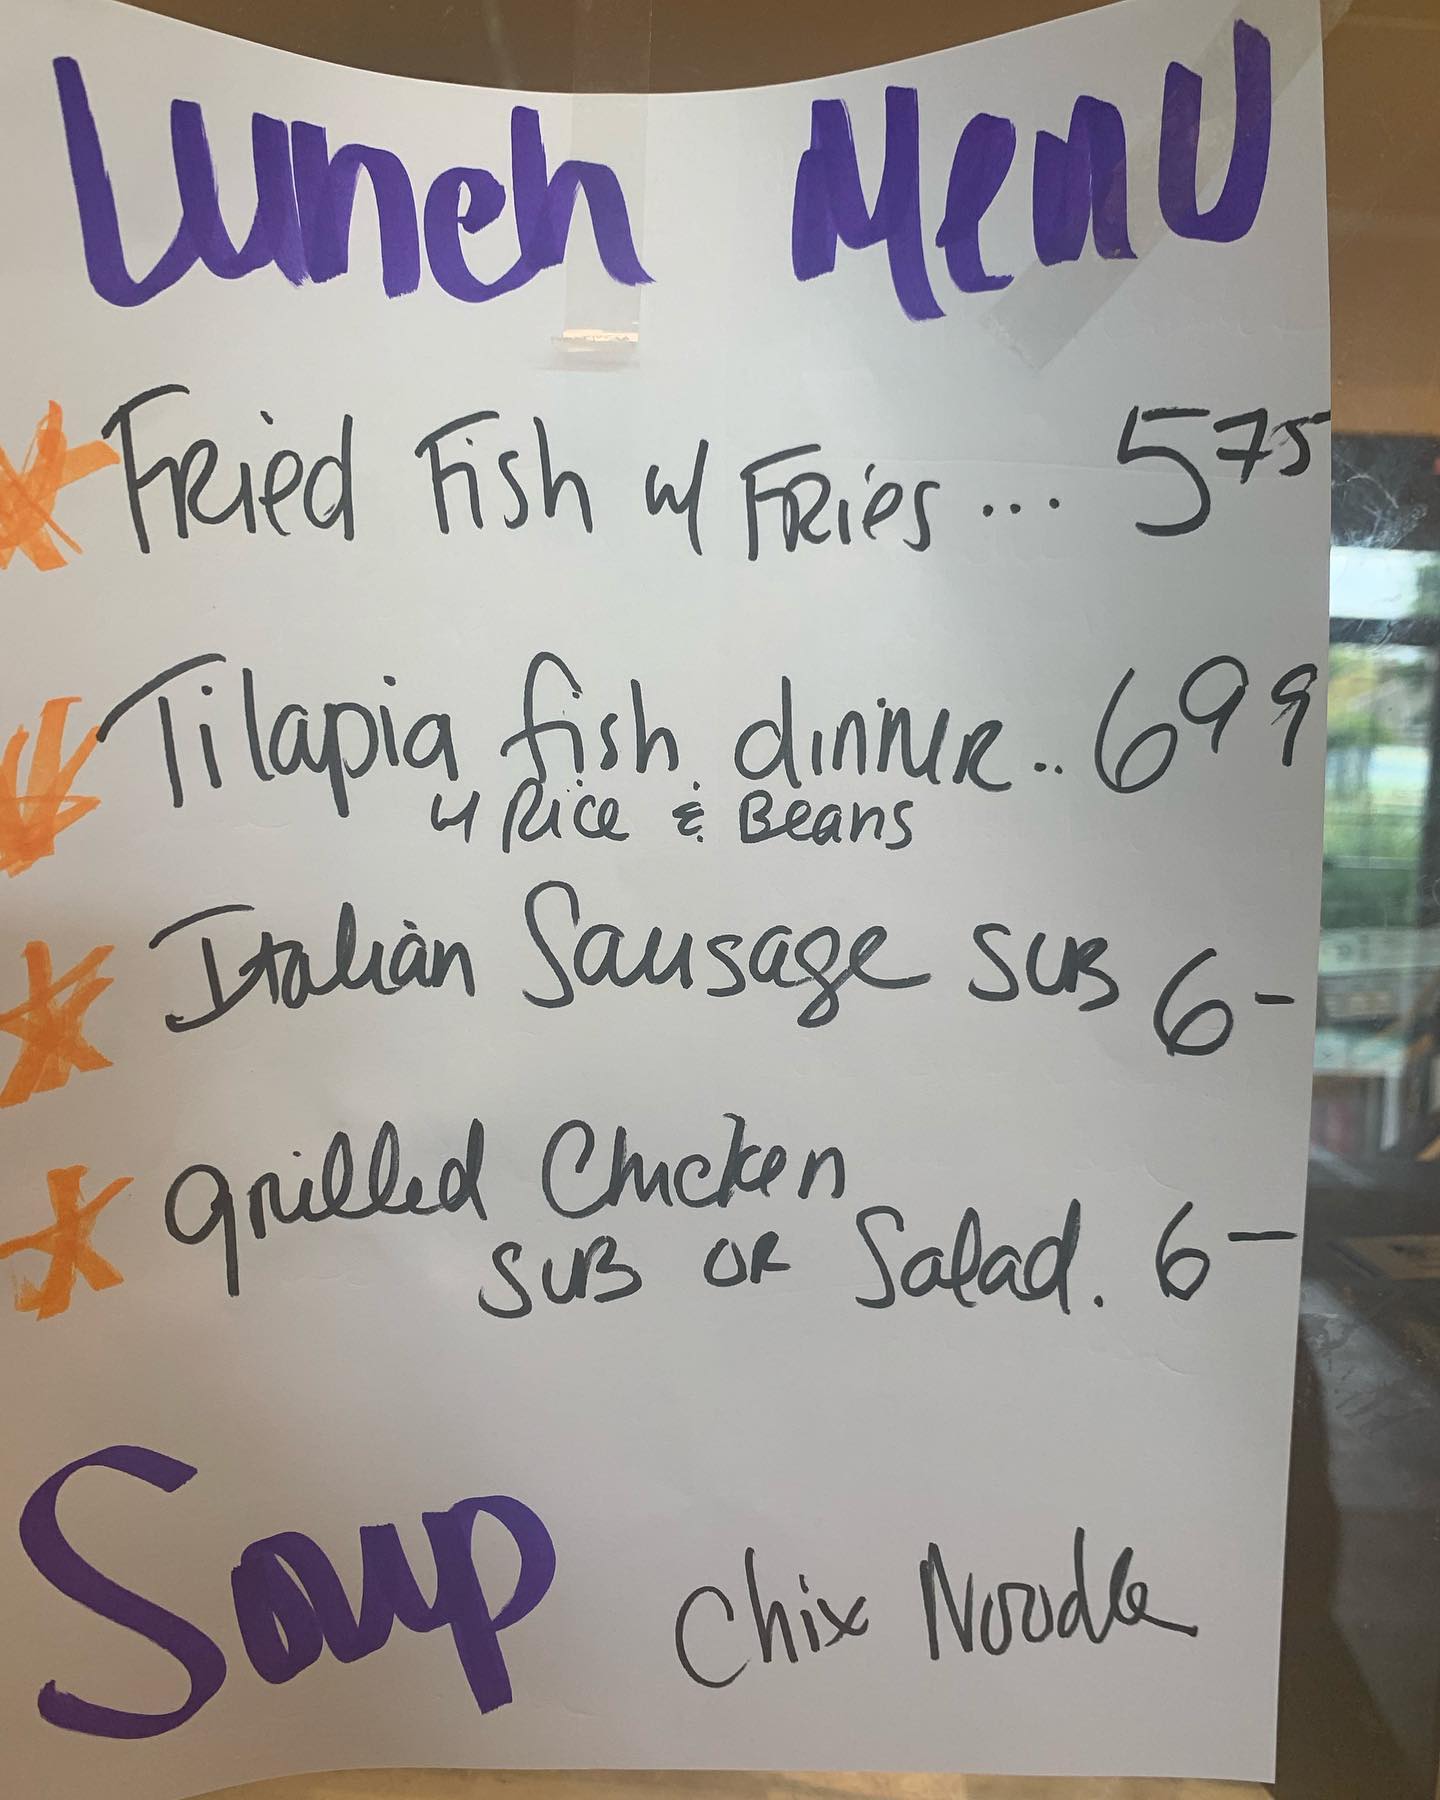 Lunch Menu
Fried Fish w/ Fries ... 5 75
Tilapia fish dinner .. 6 99
w/ Rice & Beans
Italian Sausage SUB 6 -
Grilled Chicken
SUB OR Salad. 6 -
Soup Chix Noodle